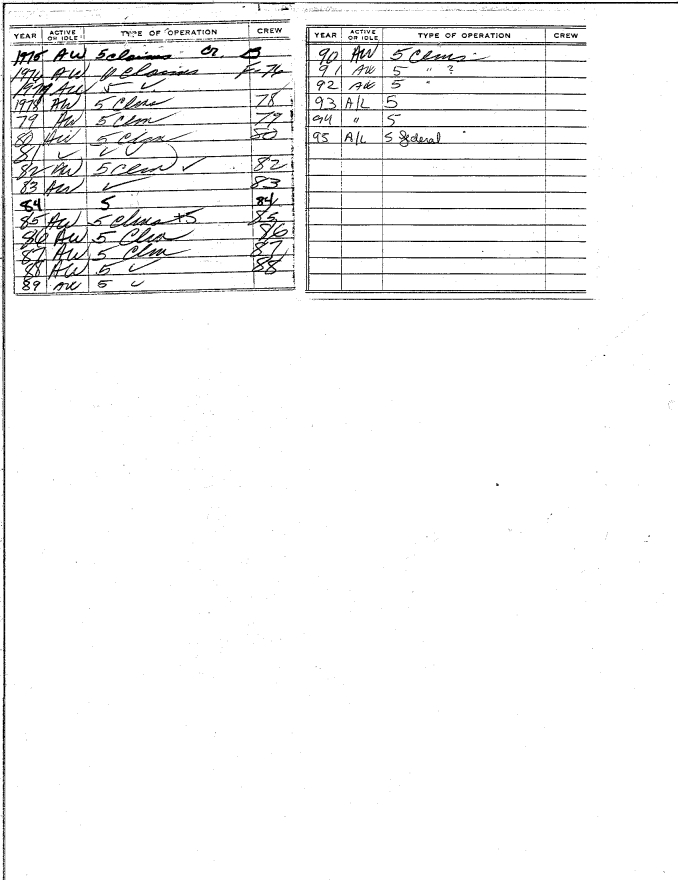 YEAR ACTIVE OR IDLE TYPE OF OPERATION CREW
1975 AW 5 claims Cr. B
1976 AW Claims F-76
1977 AW 5 ✓
1978 AW 5 Clms 78
79 AW 5 Clm 79
80 AW 5 Clm 80
81 ✓ ✓ ✓
82 AW 5 Clm ✓ 82
83 AW ✓ 83
84 5 84
85 AW 5 Clms +5 85
86 AW 5 Clm 86
87 AW 5 Clm 87
88 AW 5 ✓ 88
89 AW 5 ✓
YEAR ACTIVE OR IDLE TYPE OF OPERATION CREW
90 AW 5 Clms
91 AW 5 " ?
92 AW 5 "
93 A/L 5
94 " 5
95 A/L 5 federal